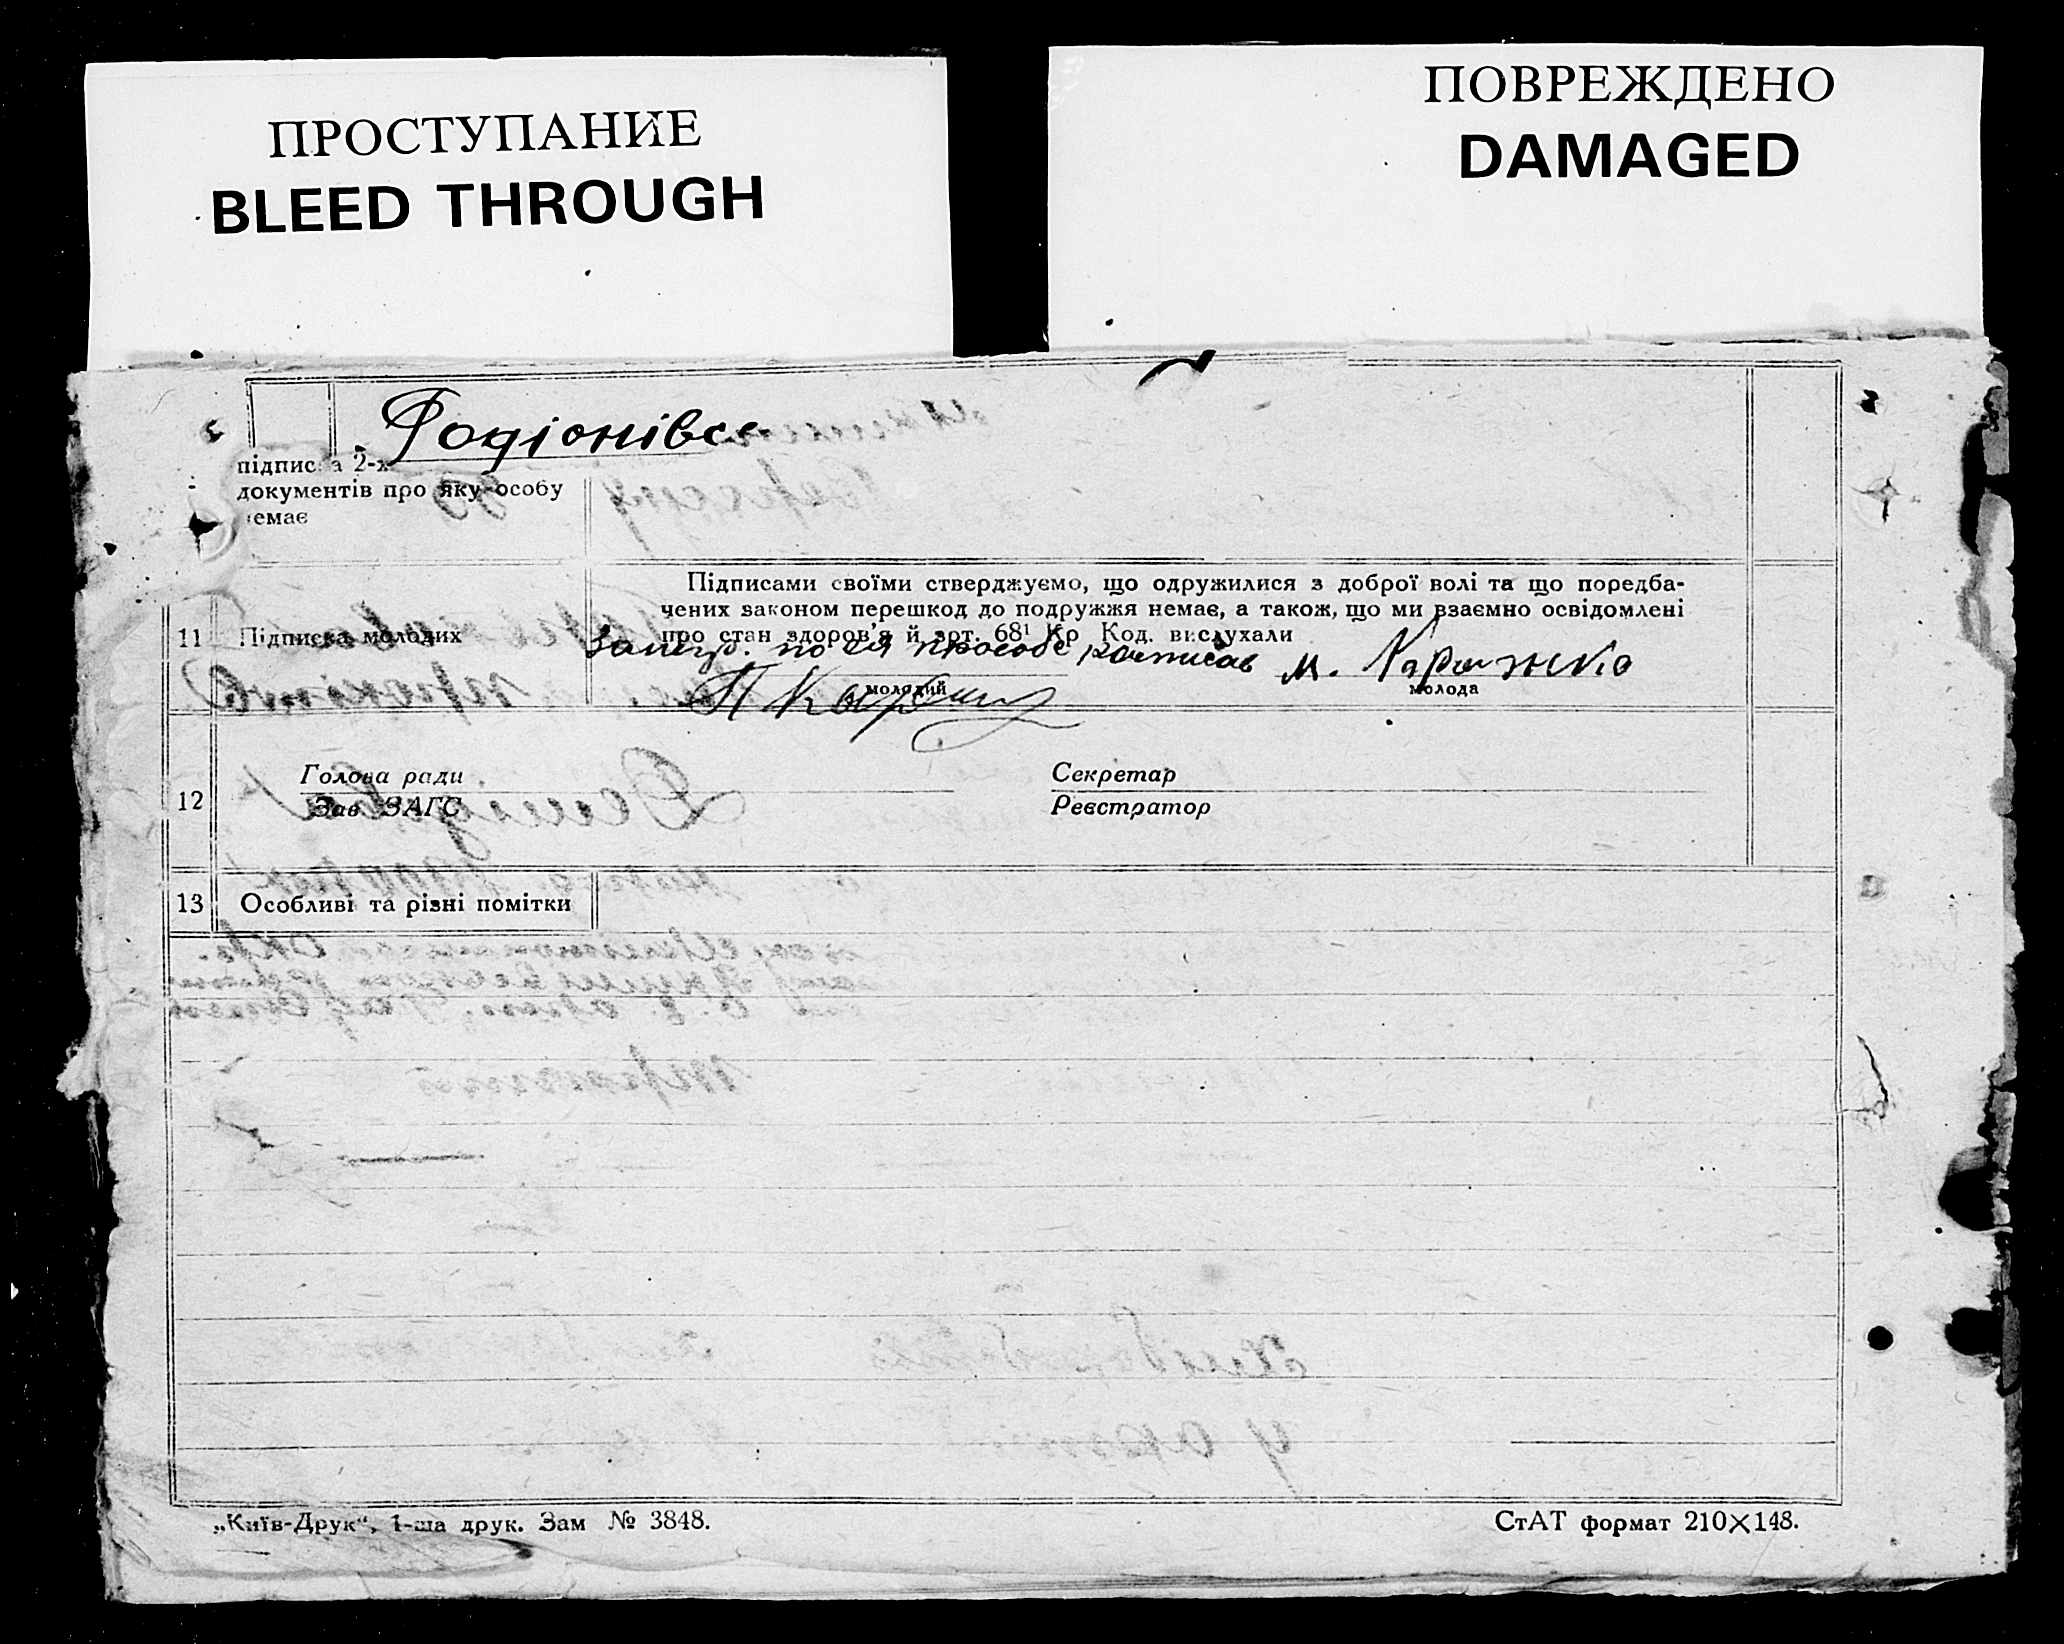 ПРОСТУПАНИЕ
BLEED THROUGH
ПОВРЕЖДЕНО
DAMAGED
Родіонівсь
підпис а 2-х
документів про яку особу
немає
Підписами своїми стверджуємо, що одружилися з доброї волі та що поредба-
чених законом перешкод до подружжя немає, а також, що ми взаємно освідомлені
про стан здоров'я й арт. 68¹ Кр Код. вислухали
11 Підписка молодих
по ея прособе расписав м.
молодий молода
12 Голова ради Секретар
Зав ЗАГС Реєстратор
13 Особливі та різні помітки
„Київ-Друк“, 1-ша друк. Зам № 3848.
СтАТ формат 210×148.